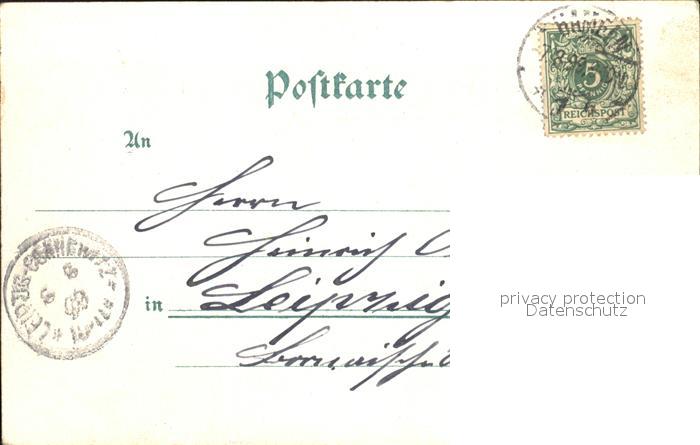 HAMELN
5
PFENNIG
REICHSPOST
Postkarte
An
Herrn
Heinrich
in Leipzig
Bornaische
LEIPZIG-CONNEWITZ
privacy protection
Datenschutz